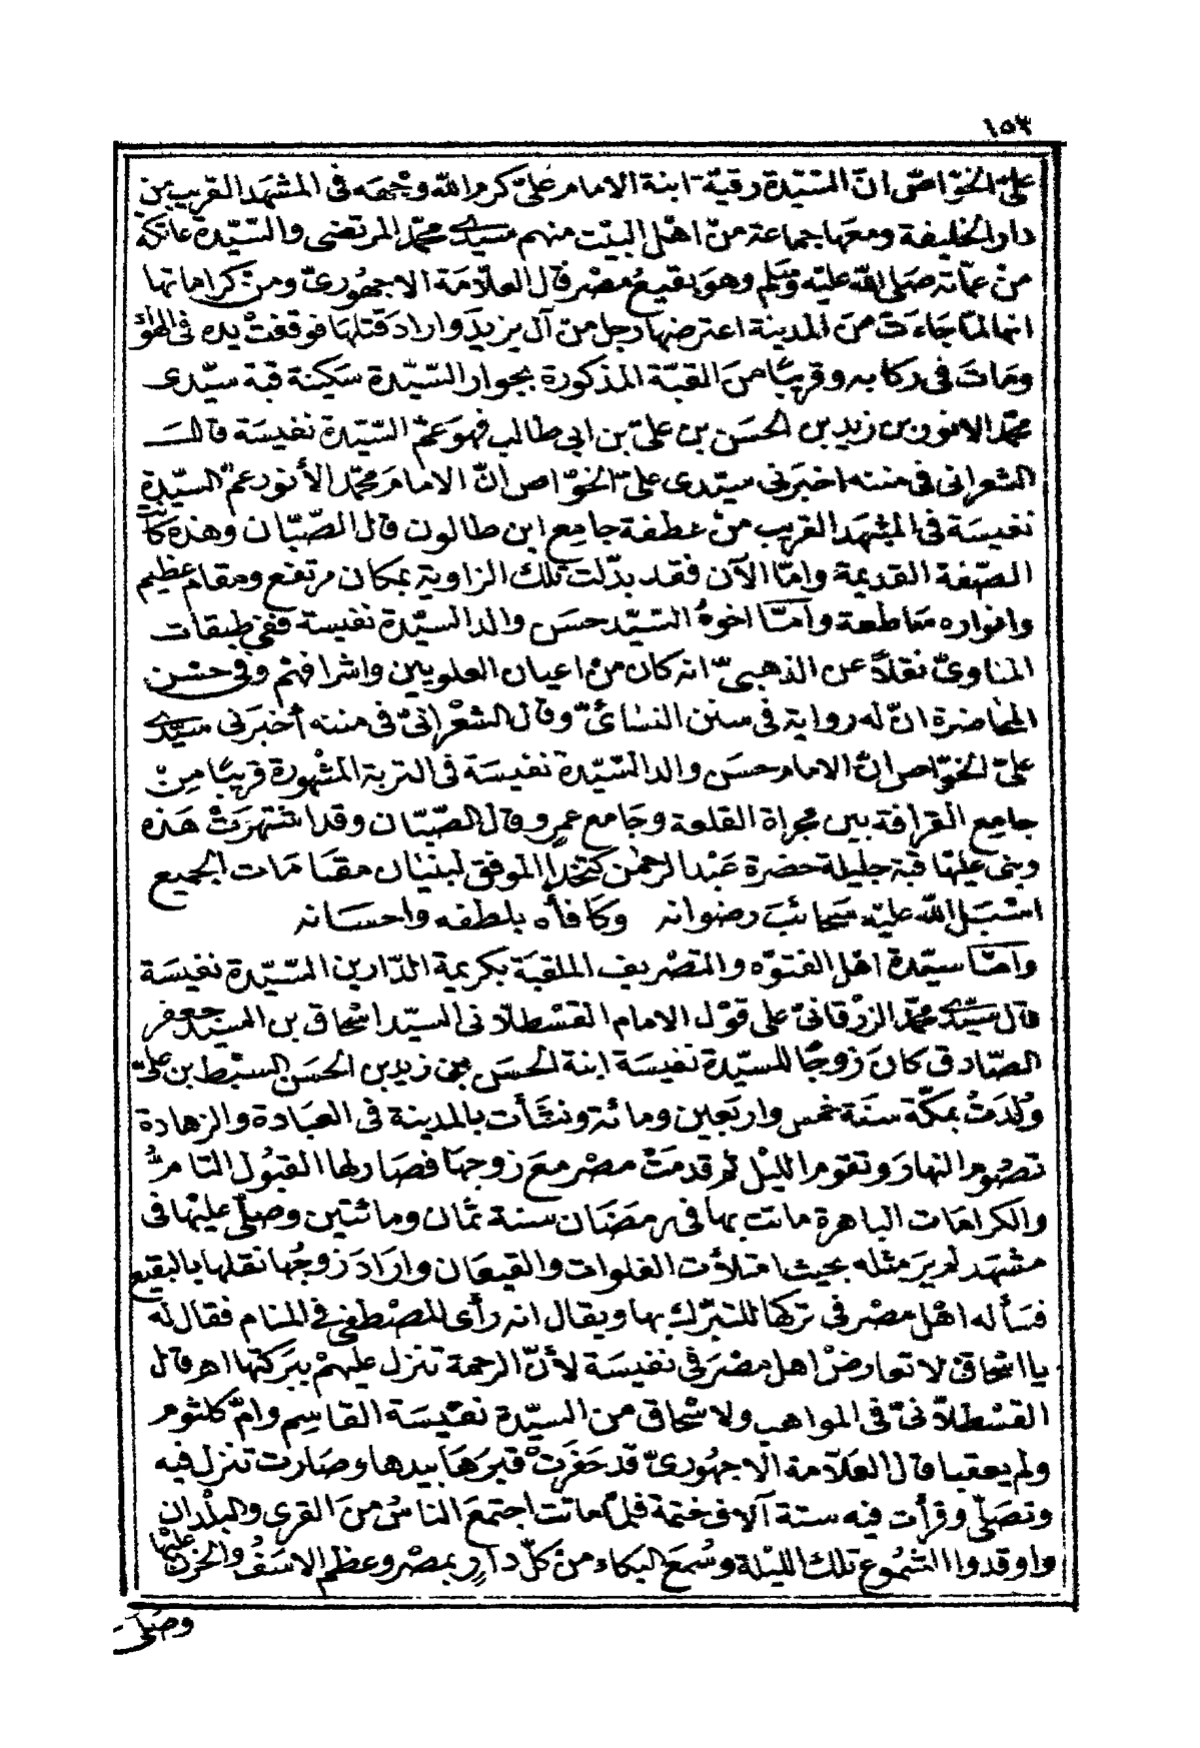 ١٥٣
علىّ الخوّاصّ انّ السّيّدة رقيّة ابنة الامام علىّ كرم الله وجهه فى المشهد القريب من
دار الخليفة ومعها جماعة من اهل البيت منهم سيّدى محمّد المرتضى والسّيّدة عاتكة
من عمّاته صلى الله عليه وسلم وهو بقيع مصر قال العلّامة الاجهورىّ ومن كراماتها
انها لمّا جاءت من المدينة اعترضها رجل من آل يزيد واراد قتلها فوقفت يده فى الهوآ
ومات فى ركابه وقريبًا من القبّة المذكورة بجوار السّيّدة سكينة قبة سيّدى
محمّد الانور بن زيد بن الحسن بن علىّ بن ابى طالب فهو عمّ السّيّدة نفيسة قال
الشعرانى فى مننه اخبرنى سيّدى علىّ الخوّاص انّ الامام محمّد الأنور عمّ السيّدة
نفيسة فى المشهد القريب من عطفة جامع ابن طالون قال الصّبّان وهذه كانت
الصّفة القديمة وامّا الآن فقد بدّلت تلك الزاوية بمكان مرتفع ومقام عظيم
وانواره ساطعة وأمّا اخوهُ السّيّد حسن والد السيّدة نفيسة ففى طبقات
المناوىّ نقلاً عن الذهبىّ انه كان من اعيان العلويين واشرافهم وفى حسن
المحاضرة انّ له رواية فى سنن النسائىّ وقال الشعرانىّ فى مننه أخبرنى سيّدى
علىّ الخوّاص انّ الامام حسن والد السّيّدة نفيسة فى التربة المشهورة قريبًا من
جامع القرافة بين مجراة القلعة وجامع عمرو وقال الصّبّان وقد اشتهرت هذه
وبنى عليها قبة جليلة حضرة عبد الرحمن كتخدا الموفق لبنيان مقامات الجميع
اسبل الله عليه سحائب رضوانه وكافأه بلطفه واحسانه
وامّا سيّدة اهل الفتوّه والتصريف الملقبة بكريمة الدّارين السّيّدة نفيسة
قال سيّدى محمّد الزرقانىّ على قول الامام القسطلّانى السيّد اسحاق بن السيّد جعفر
الصّادق كان زوجًا للسيّدة نفيسة ابنة الحسن بن زيد بن الحسن السبط بن علىّ
ولدت بمكّة سنة خمس واربعين ومائة ونشأت بالمدينة فى العبادة والزهادة
تصوم النهار وتقوم الليل ثم قدمت مصر مع زوجها فصار لها القبول التامّ
والكرامات الباهرة ماتت بها فى رمضان سنة ثمان ومائتين وصلّى عليها فى
مشهد لم ير مثله بحيث امتلأت الفلوات والقيعان واراد زوجها نقلها بالبقيع
فسأله اهل مصر فى تركها للتبرّك بها ويقال انه رأى المصطفى فى المنام فقال له
يا اسحاق لا تعارض اهل مصر فى نفيسة لأنّ الرحمة تنزل عليهم ببركتها اهـ قال
القسطلّانىّ فى المواهب ولاسحاق من السيّدة نفيسة القاسم وامّ كلثوم
ولم يعقبا قال العلّامة الاجهورىّ قد حفرت قبرها بيدها وصارت تنزل فيه
وتصلّى وقرأت فيه ستة آلاف ختمة فلمّا ماتت اجتمع الناس من القرى والبلدان
واوقدوا الشموع تلك الليلة وسُمع البكاء من كلّ دار بمصر وعظم الاسف والحزن عليها
وصلى